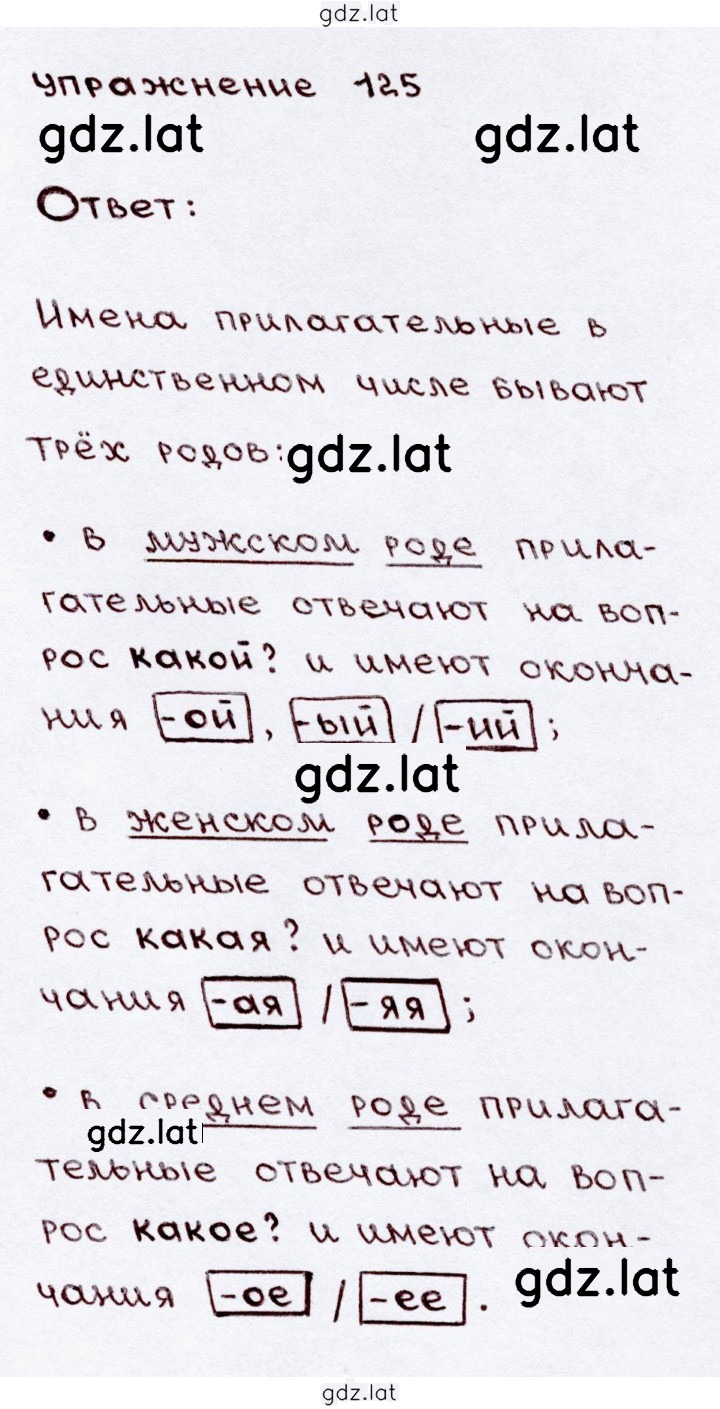 gdz.lat
упражнение 125
gdz.lat gdz.lat
Ответ:
Имена прилагательные в
единственном числе бывают
трёх родов: gdz.lat
• в мужском роде прила-
гательные отвечают на воп-
рос какой? и имеют оконча-
ния -ой, -ый / -ий;
gdz.lat
• в женском роде прила-
гательные отвечают на воп-
рос какая? и имеют окон-
чания -ая / -яя;
• в среднем роде прилага-
gdz.lat
тельные отвечают на воп-
рос какое? и имеют окон-
чания -ое / -ее. gdz.lat
gdz.lat